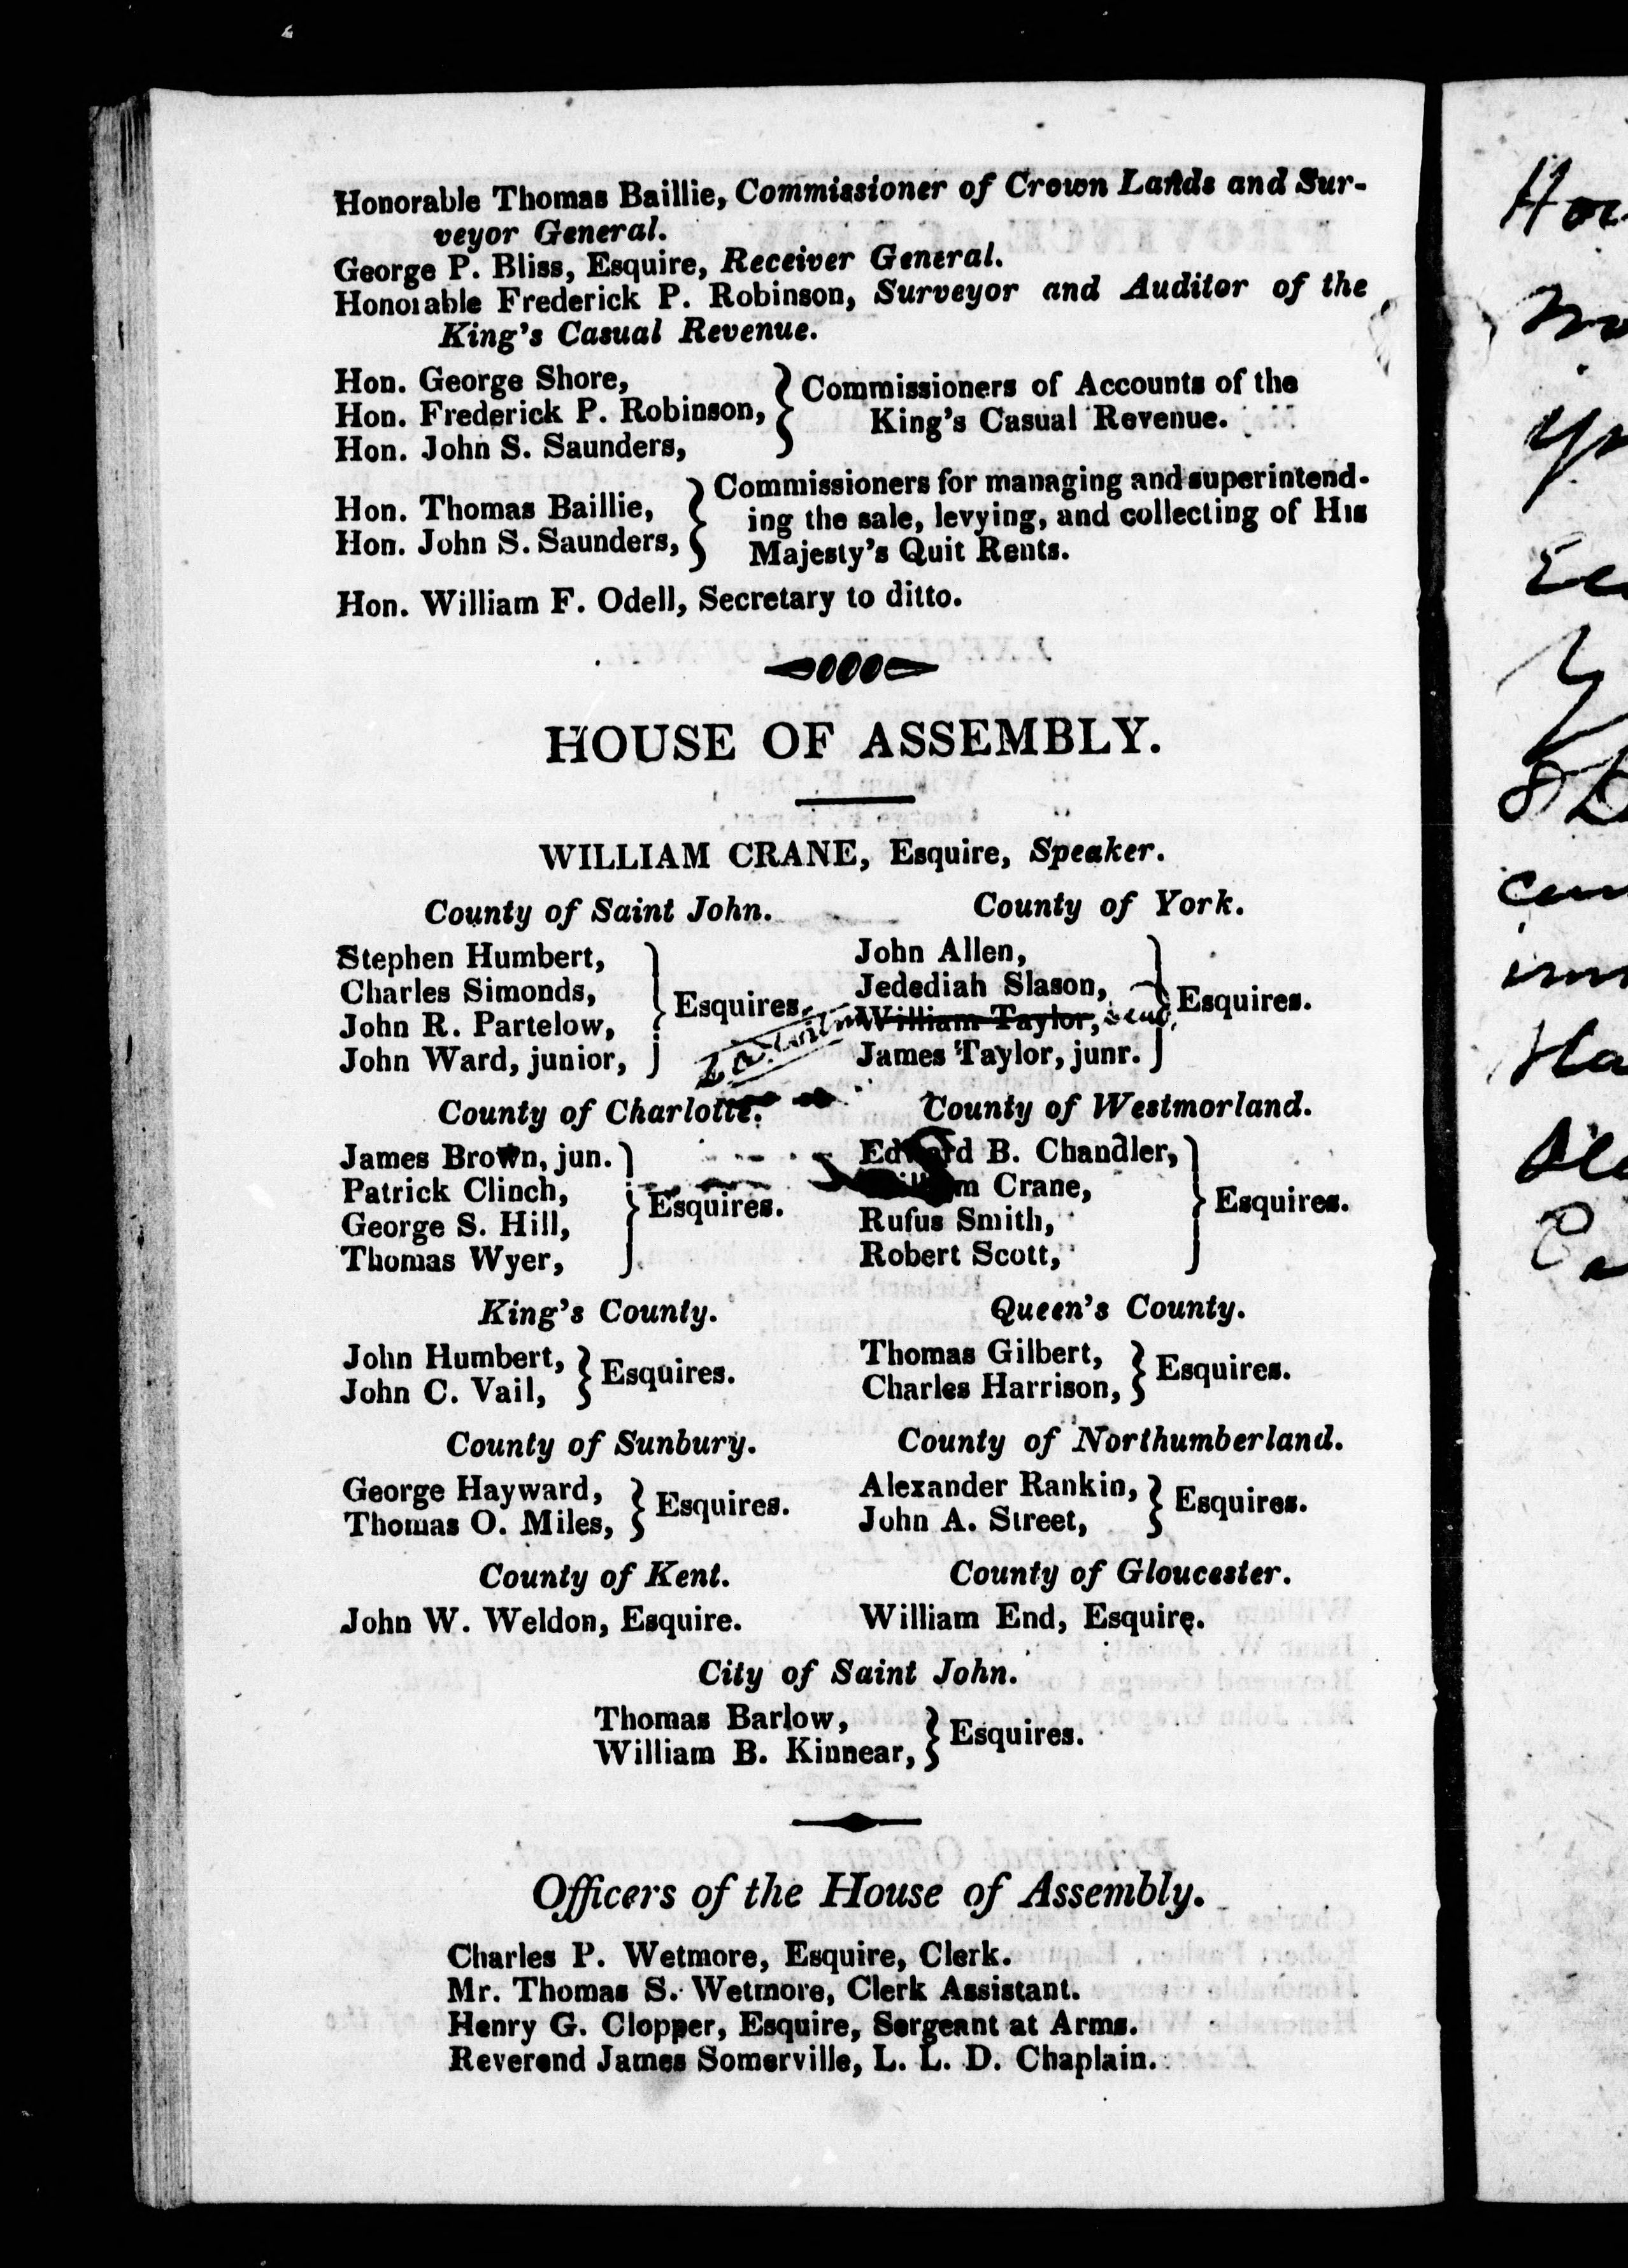 Honorable Thomas Baillie, Commissioner of Crown Lands and Sur-
veyor General.
George P. Bliss, Esquire, Receiver General.
Honorable Frederick P. Robinson, Surveyor and Auditor of the
King's Casual Revenue.
Hon. George Shore,
Hon. Frederick P. Robinson,
Hon. John S. Saunders,
Commissioners of Accounts of the
King's Casual Revenue.
Hon. Thomas Baillie,
Hon. John S. Saunders,
Commissioners for managing and superintend-
ing the sale, levying, and collecting of His
Majesty's Quit Rents.
Hon. William F. Odell, Secretary to ditto.
HOUSE OF ASSEMBLY.
WILLIAM CRANE, Esquire, Speaker.
County of Saint John.
Stephen Humbert,
Charles Simonds,
John R. Partelow,
John Ward, junior,
Esquires.
County of York.
John Allen,
Jedediah Slason,
William Taylor,
James Taylor, junr.
Esquires.
County of Charlotte.
James Brown, jun.
Patrick Clinch,
George S. Hill,
Thomas Wyer,
Esquires.
County of Westmorland.
Edward B. Chandler,
William Crane,
Rufus Smith,
Robert Scott,
Esquires.
King's County.
John Humbert,
John C. Vail,
Esquires.
Queen's County.
Thomas Gilbert,
Charles Harrison,
Esquires.
County of Sunbury.
George Hayward,
Thomas O. Miles,
Esquires.
County of Northumberland.
Alexander Rankin,
John A. Street,
Esquires.
County of Kent.
John W. Weldon, Esquire.
County of Gloucester.
William End, Esquire.
City of Saint John.
Thomas Barlow,
William B. Kinnear,
Esquires.
Officers of the House of Assembly.
Charles P. Wetmore, Esquire, Clerk.
Mr. Thomas S. Wetmore, Clerk Assistant.
Henry G. Clopper, Esquire, Sergeant at Arms.
Reverend James Somerville, L. L. D. Chaplain.